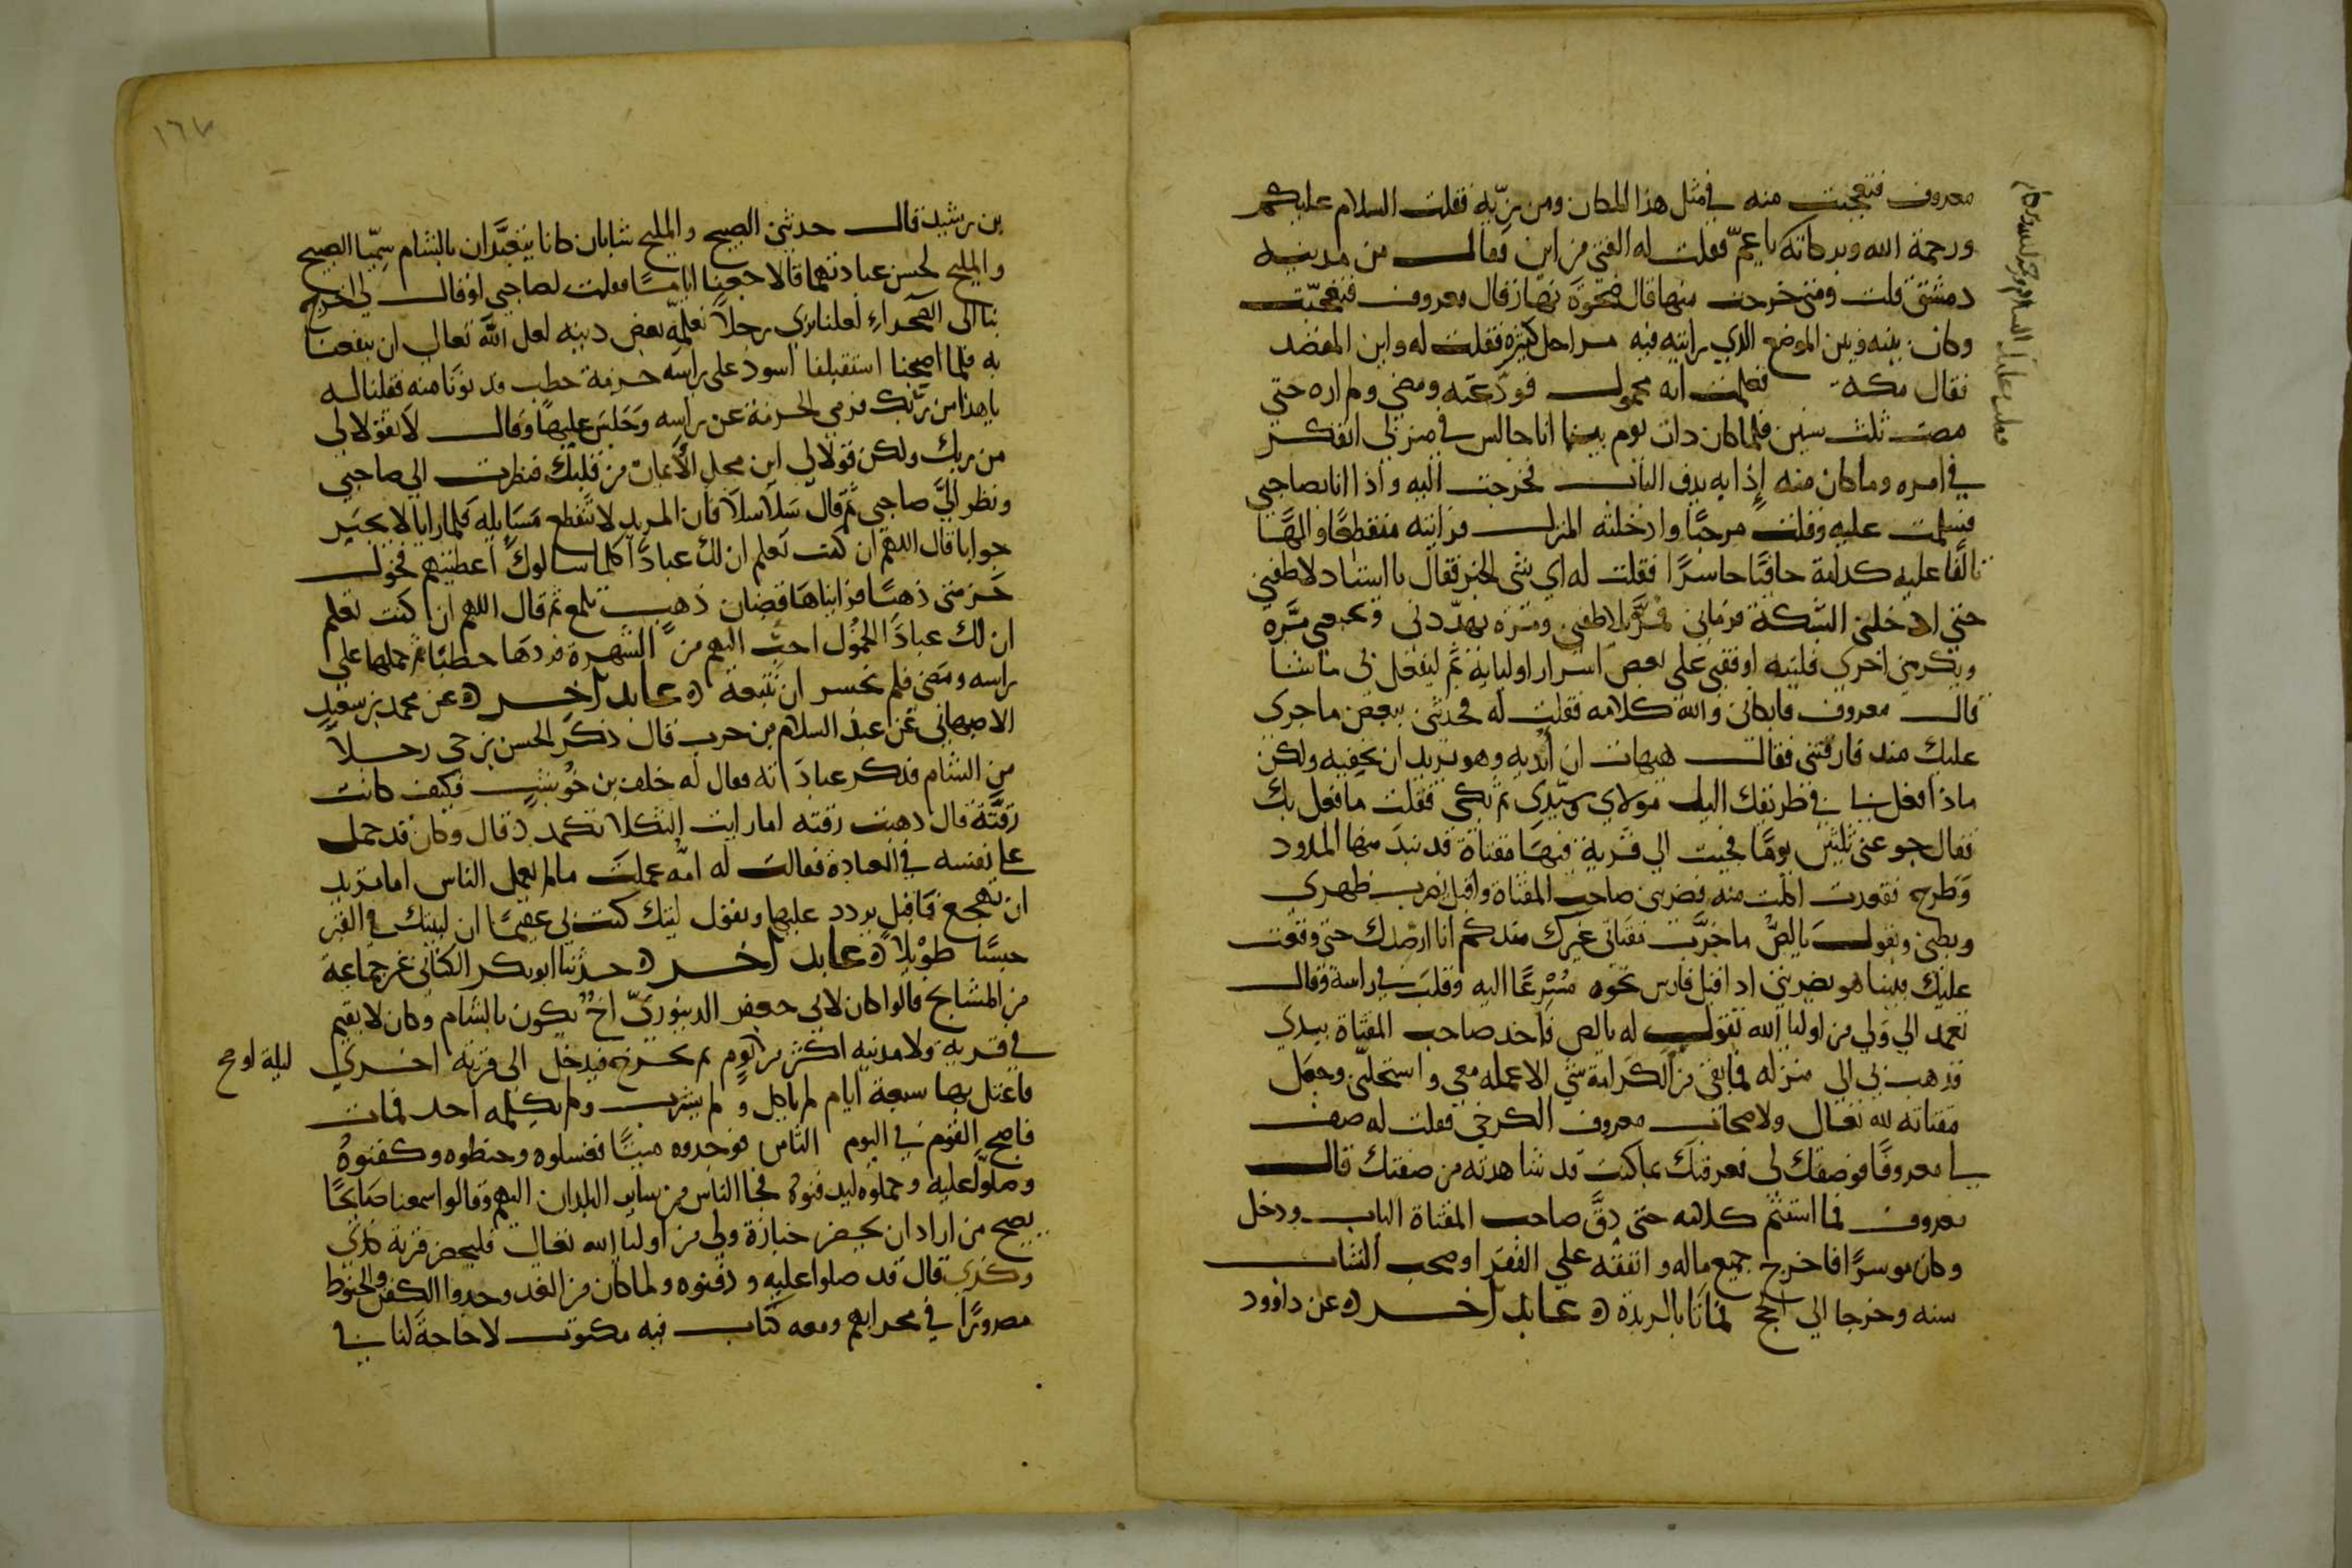 معروف فتعجبت منه في مثل هذا المكان ومن زيّه فقلت السلام عليكم
ورحمة الله وبركاته يا عمّ فقلت له الفتى من اين فقال من مدينه
دمشق قلت ومتى خرجت منها قال ضحوَة نهار قال معروف فتعجبّت
وكان بينه وبين الموضع الذي رايته فيه مراحل كثيره فقلت له واين المقصد
فقال مكه فعلمت انه محمول فودّعته ومضى ولم اره حتى
مضت ثلث سنين فلما كان ذات يوم بينما انا جالس في منزلي اتفكر
في امره وما كان منه إذا به يدق الباب فخرجت اليه واذا انا بصاحبي
فسلمت عليه وقلت مرحبًا وادخلته المنزل فرايته منقطعًا والهًا
تالفًا عليه حافيًا حاسرًا فقلت له اي شي الخبر فقال يا استاد لاطفني
حتى ادخلني الشبكة فرماني فمرّة لاطفني ومرة يهدّدني ويجيعني مرّة
ويكرمني اخرى فليته اوقفني على بعض اسرار اوليايه ثم ليفعل بي ما شا
قال معروف فابكاني والله كلامه فقلت له فحدثني ببعض ما جرى
عليك منذ فارقتني فقال هيهات ان أبديه وهو يريد ان يخفيه ولكن
ماذا فعل بي في طريقك اليك مولاي وسيّدي ثم بكى فقلت ما فعل بك
فقال جوعني ثلثين يومًا فجيت الي قرية فيهَا مقثاة قد نبذ منها المدود
وَطرح فقعدت اكل منه فضربني صاحب المقثاة واقبل يضرب ظهري
وبطني ويقول يا لصُّ ما خرّب مقثاتي غيرك منذكم انا ارصدك حتى وقعت
عليك فبينا هو يضربني اذ اقبل فارس نحوه مُسْرعًا اليه وقلبَ في راسه وقال
تعمد الي وَلي من اوليا الله تقول له يا لص فاخد صاحب المقثاة بيدي
فذهب بي الي منزله فما بقى من الكرامة شي الا عمله معي واستحلّني وجعل
مقثاته لله تعالى ولاصحاب معروف الكرخي فقلت له صف
لي معروفًا فوصفك لي فعرفتك بما كنت قد شاهدته من صفتك قال
معروف فما استتم كلامه حتى دقّ صاحب المقثاة الباب ودخل
وكان موسرًا فاخرج جميع ماله وانفقه علي الفقرا وصحب الشاب
سنه وخرجا الي الحج فماتا بالربذة ۞ عابد آخر ۞ عن داوود
١٦٧
بن رشيد قال حدثني الصبيح والمليح شابان كانا يتعبّدان بالشام سمّيا الصبيح
والمليح لحسن عبادتهما قالا جعنا ايامًا فقلت لصاحبي او قال لي اخرج
بنا الى الصَحراءِ لعلنا نرى رجلاً نعلمه بعض دينه لعل الله تعالى ان ينفعنا
به فلما اصحرنا استقبلنا اسود على راسه حزمة حطب فدنونا منه فقلنا له
يا هذا من ربّك فرمى الحزمة عن راسه وَجَلسَ عليهَا وقال لا تقولا لي
من ربك ولكن قولا لي اين محل الأيمان من قلبك فنظرت الي صاحبي
ونظر اليَّ صاحبي ثم قال سَلا سلا فان المريد لا تنقطع مَسَايله فلما رانا لا نحير
جوابا قال اللهم ان كنت تعلم ان لك عبادًا كلما سالوك أعطيتهم فحول
حَزمتي ذهبًا فرايناهَا قضبان ذهب تلمع ثم قال اللهم ان كنت تعلم
ان لك عبادًا الخمُول احبّ اليهم من الشهرة فردهَا حطبًا ثم حملها علي
راسه ومَضى فلم نجسر ان نتبعه ۞ عابد آخر ۞ عن محمد بن سعيد
الاصبهاني عن عبد السلام بن حرب قال ذكر الحسن بن حي رجلاً
من الشام فذكر عبادَاته فقال له خلف بن حُوشب فكيف كانت
رقّته قال ذهبت رقته اما رايت الثكلا تكمد قال وكان قد حمل
على نفسه في العبادة فقالت له امّه عملتَ ما لم يعمل الناس اما تريد
ان تهجع فاقبل يردد عليها ويقول ليتك كنت بي عقيمًا ان لبنيك في القبر
حبسًا طويلا ۞ عابد آخر ۞ حدّثنا ابو بكر الكتاني عن جماعة
من المشايخ قالوا كان لابي جعفر الدينوريّ اخ يكون بالشام وكان لا يقيم
في قرية ولا مدينه اكثر من يوم ثم يخرج فيدخل الى قرية اخري
ليلة او
فاعتل بها سبعة ايام لم ياكل ولم يشرب ولم يكلمه احد فمات
فاصبح القوم في اليوم الثامن فوجدوه ميتًا فغسلوه وحنطوه وكفنوهُ
وصلوا عليه وحملوه ليدفنوه فجا الناس من ساير البلدان اليهم وقالوا سمعنا صَايحًا
يصيح من اراد ان يحضر جنازة ولي من اوليا الله تعالى فليحضر قرية كذي
وكذي قال قد صلوا عليه ودفنوه ولما كان من الغد وجدوا الكفن والحنوط
مصرورًا في محرابهم ومعه كتاب فيه مكتوب لا حاجة لنا في